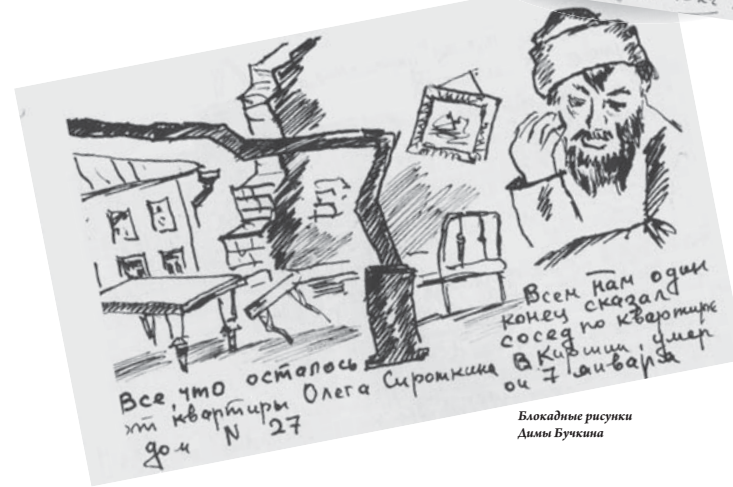 Все, что осталось
от квартиры Олега Сироткина
дом N 27
Всем нам один
конец сказал
сосед по квартире
В. Киршин, умер
он 7 января
Блокадные рисунки
Димы Бучкина